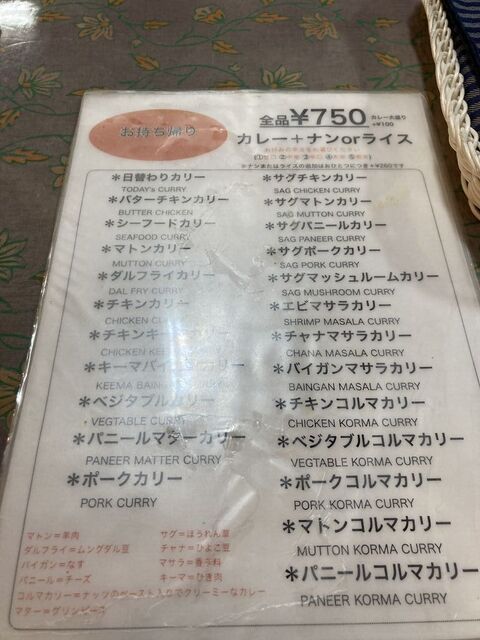 お持ち帰り
全品¥750 カレー大盛り+¥100
カレー+ナンorライス
*ナンまたはライスの追加はおひとつにつき+¥260です
*日替わりカリー
TODAY's CURRY
*バターチキンカリー
BUTTER CHICKEN
*シーフードカリー
SEAFOOD CURRY
*マトンカリー
MUTTON CURRY
*ダルフライカリー
DAL FRY CURRY
*チキンカリー
CHICKEN
*チキンキ
CHICKEN KEE
*キーマバイ カリー
KEEMA BAINGAN CURRY
*ベジタブルカリー
VEGTABLE CURRY
*パニールマターカリー
PANEER MATTER CURRY
*ポークカリー
PORK CURRY
*サグチキンカリー
SAG CHICKEN CURRY
*サグマトンカリー
SAG MUTTON CURRY
*サグパニールカリー
SAG PANEER CURRY
*サグポークカリー
SAG PORK CURRY
*サグマッシュルームカリー
SAG MUSHROOM CURRY
*エビマサラカリー
SHRIMP MASALA CURRY
*チャナマサラカリー
CHANA MASALA CURRY
*バイガンマサラカリー
BAINGAN MASALA CURRY
*チキンコルマカリー
CHICKEN KORMA CURRY
*ベジタブルコルマカリー
VEGTABLE KORMA CURRY
*ポークコルマカリー
PORK KORMA CURRY
*マトンコルマカリー
MUTTON KORMA CURRY
*パニールコルマカリー
PANEER KORMA CURRY
マトン=羊肉 サグ=ほうれん草
ダルフライ=ムングダル豆 チャナ=ひよこ豆
バイガン=なす マサラ=香辛料
パニール=チーズ キーマ=ひき肉
コルマカリー=ナッツのペースト入りでクリーミーなカレー
マター=グリンピース